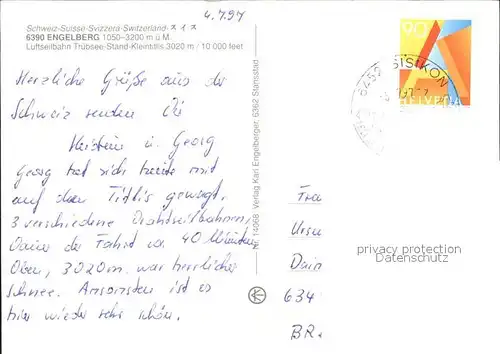 4.7.97
Schweiz-Suisse-Svizzera-Switzerland
6390 ENGELBERG 1050–3200 m ü.M.
Luftseilbahn Trübsee-Stand-Kleintitlis 3020 m / 10 000 feet
Herzliche Grüße aus der
Schweiz senden Dir
Kerstin u. Georg
Georg hat sich heute mit
auf den Titlis gewagt.
3 verschiedene Drahtseilbahnen,
Dauer der Fahrt ca 40 Minuten
Oben, 3020 m. war herrlicher
Schnee. Ansonsten ist es
hier wieder sehr schön.
Nr. 14068 Verlag Karl Engelberger, 6362 Stansstad
90
A
HELVETIA
6452 SISIKON
Frau
634
BR
privacy protection
Datenschutz